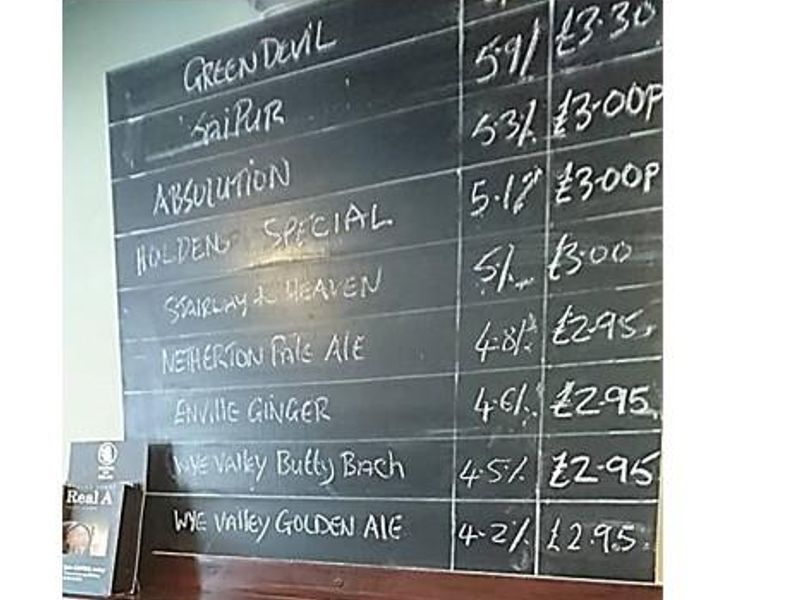 GREEN DEVIL
JAiPUR 5.9% £3.30
ABSOLUTION 5.3% £3.00P
HOLDENS SPECIAL 5.1% £3.00P
STAIRWAY to HEAVEN 5% £3.00
NETHERTON PALE ALE 4.8% £2.95
ENVILLE GINGER 4.6% £2.95
WYE VALLEY Butty Bach 4.5% £2.95
WYE VALLEY GOLDEN ALE 4.2% £2.95
Real A